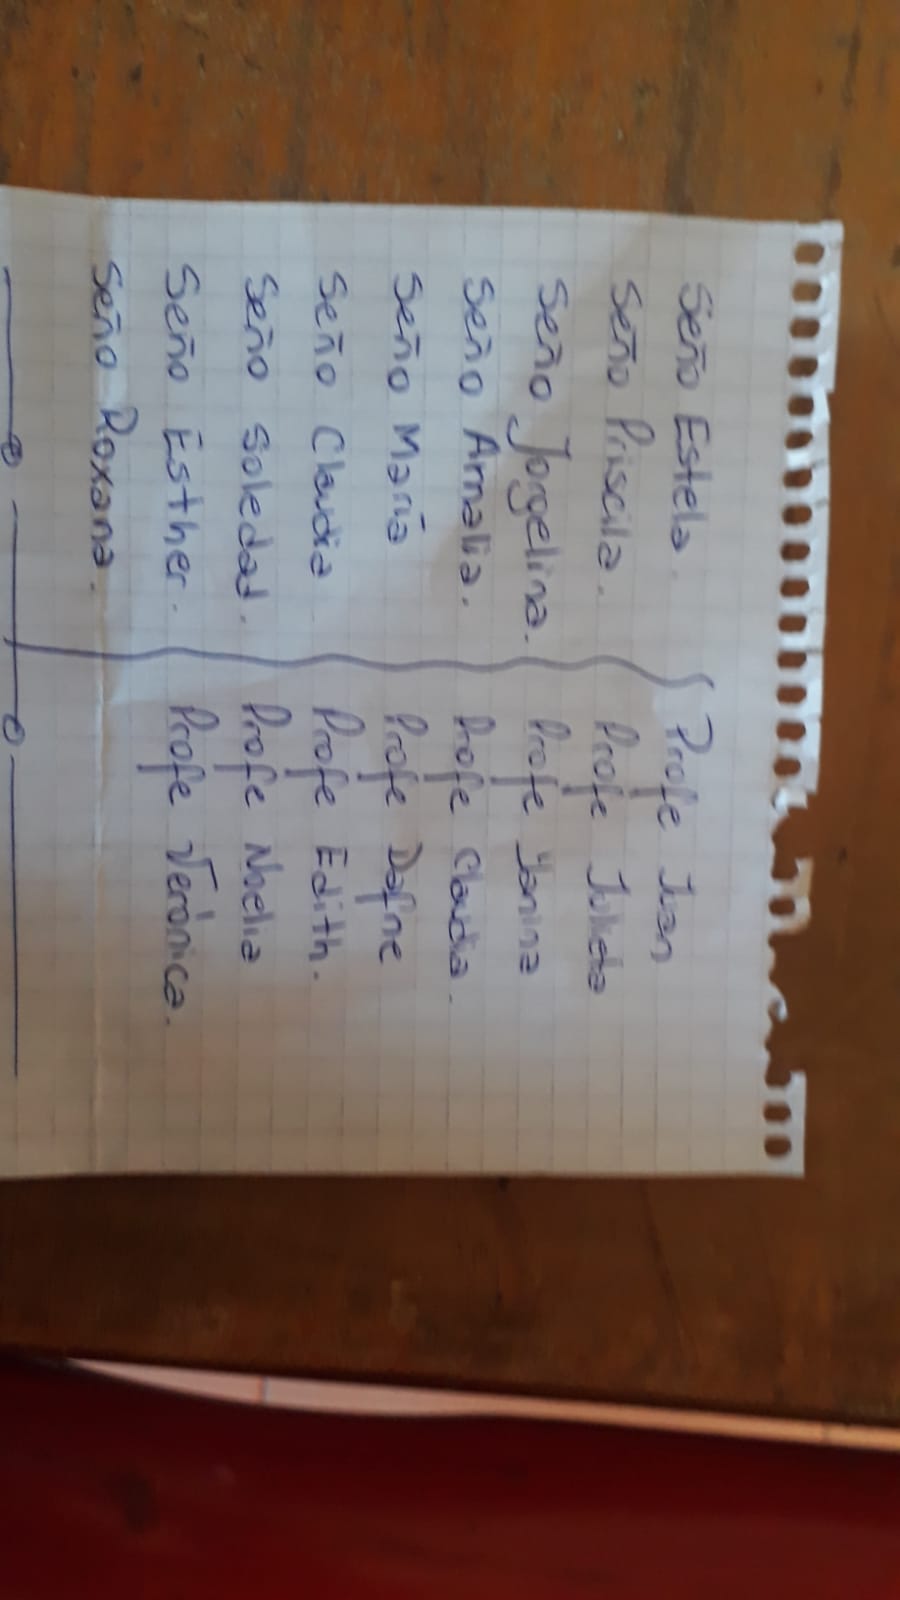 Seño Estela.
Seño Priscila.
Seño Jorgelina.
Seño Amalia.
Seño María
Seño Claudia
Seño Soledad.
Seño Esther.
Seño Roxana.
Profe Juan
Profe Julieta
Profe Yanina
Profe Claudia.
Profe Dafne
Profe Edith.
Profe Noelia
Profe Verónica.